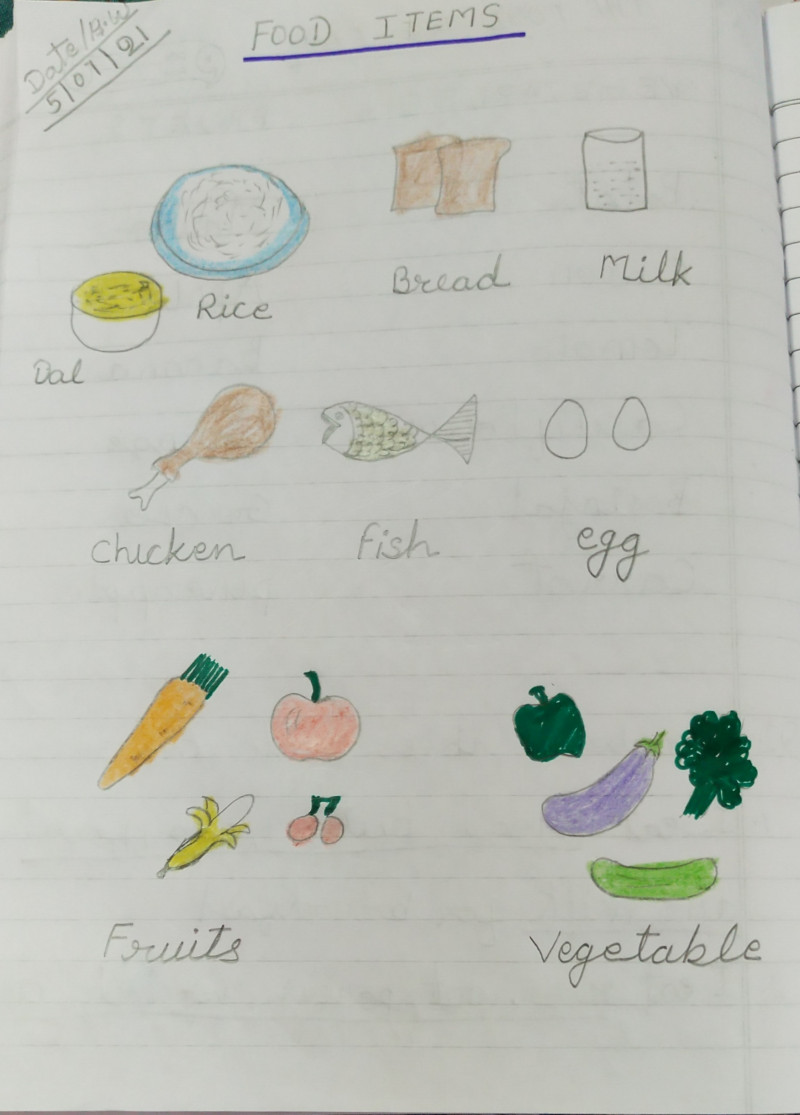 Date/H.W
5/07/21
FOOD ITEMS
Rice
Bread
Milk
Dal
chicken
fish
egg
Fruits
Vegetable